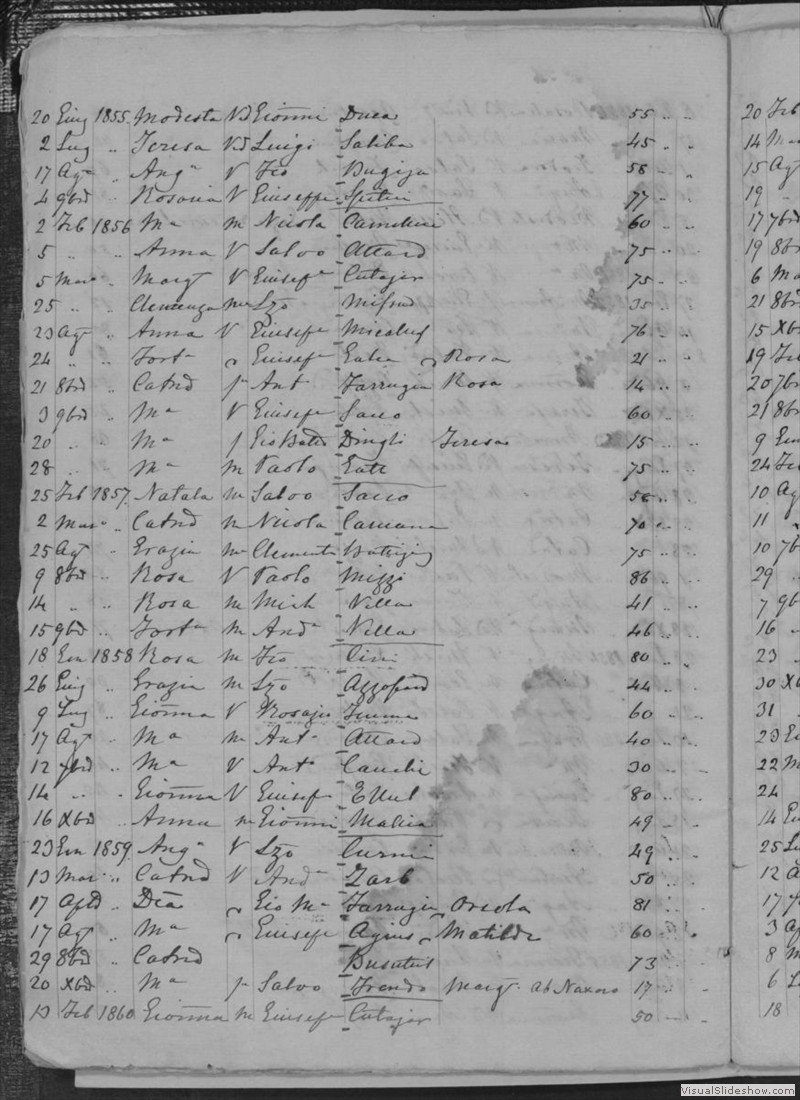 20 Giug 1855 Modesta Vd Gionni Duca 55 " "
2 Lug " Teresa Vd Luigi Saliba 45 " "
17 Agt " Anga V Feo Bugeja 58 " "
4 9bd " Rosaria V Giuseppe 77 " "
2 Feb 1856 Ma m Nicola Camilleri 60 " "
5 " " Anna V Salvo Attard 75 " "
5 Mar " Margt V Giusepe Cutajar 75 " "
25 " " Clemenza m Lzo Mifsud 35 " "
23 Agt " Anna V Giusepe Micallef 76 " "
24 " " Forta Giusepe Galea Rosa 21 " "
21 8bd " Catnd f Ant Farrugia Rosa 14 " "
3 9bd " Ma V Giusepe Sacco 60 " "
20 " " Ma f Gio Batta Dingli Teresa 15 " "
28 " " Ma m Paolo Gatt 75 " "
25 Feb 1857 Natala m Salvo Sacco " "
2 Mar " Catnd m Nicola Caruana 70 " "
25 Agt " Grazia m Clemente Buttigieg 75 " "
9 8bd " Rosa V Paolo Mizzi 86 " "
14 " " Rosa m Mich Vella 41 " "
15 9bd " Forta m Anda Vella 46 " "
18 Gen 1858 Rosa m Feo 80 " "
26 Giug " Grazia m Lzo Azzopard 44 " "
9 Lug " Gionna V Rosario 60 " "
17 Agt " Ma m Anto Attard 40 " "
12 7bd " Ma V Anto Cauchi 30 " "
14 " " Gionna V Giusepe Ellul 80 " "
16 Xbd " Anna m Gionni Mallia 49 " "
23 Gen 1859 Anga V Lzo Curmi 49 " "
13 Mar " Catnd V Anda Zarb 50 " "
17 Aple " Dia Gio Ma Farrugia Orsola 81 " "
17 Agt " Ma Giusepe Agius Matilde 60 " "
29 8bd " Catnd Busuttil 73 " "
20 Xbd " Ma f Salvo Frendo Margt ab Naxaro 17 " "
13 Feb 1860 Gionna m Giusepe Cutajar 50 " "
20 Feb
14 Mar
15 Agt
19 "
17 7bd
19 8bd
6 Ma
21 8bd
15 Xb
19 Fe
20 7b
21 8b
9 Gen
24 Fe
10 Ag
11 "
10 7b
29 "
7 9b
16 "
23 "
30 Xb
31 "
23 Ge
22 M
24
14 Ge
25 Lu
12 A
17
3 Ag
8 M
6 L
18
VisualSlideshow.com